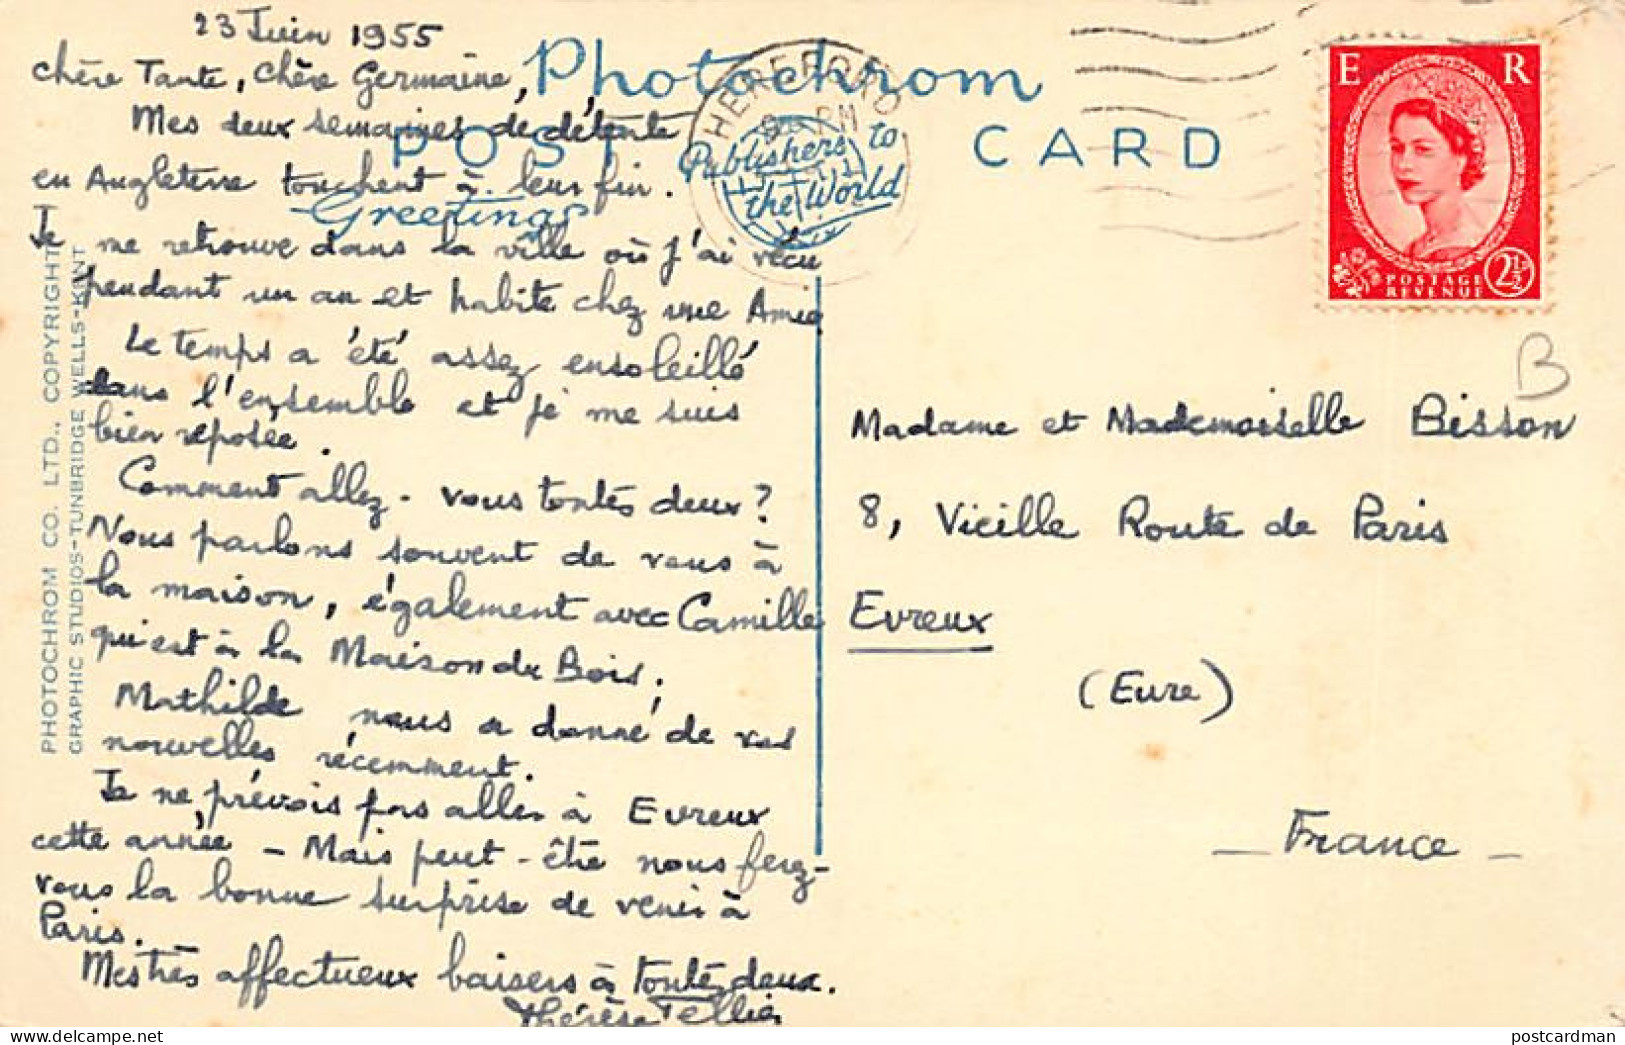 23 Juin 1955
Chère Tante, Chère Germaine,
Mes deux semaines de détente
en Angleterre touchent à leur fin.
Je me retrouve dans la ville où j'ai vécu
pendant un an et habite chez une Amie
Le temps a été assez ensoleillé
dans l'ensemble et je me suis
bien reposée.
Comment allez-vous toutes deux?
Nous parlons souvent de vous à
la maison, également avec Camille
qui est à la Maison du Bois.
Mathilde nous a donné de vos
nouvelles récemment.
Je ne prévois pas aller à Evreux
cette année - Mais peut-être nous ferez-
vous la bonne surprise de venir à
Paris.
Mes très affectueux baisers à toutes deux.
Thérèse Tellier
Photochrom
POST CARD
Greetings
Publishers to
the World
PHOTOCHROM CO. LTD., COPYRIGHT
GRAPHIC STUDIOS-TUNBRIDGE WELLS-KENT
HEREFORD
PM
E R
POSTAGE
REVENUE
2½
B
Madame et Mademoiselle Bisson
8, Vieille Route de Paris
Evreux
(Eure)
- France -
(c) delcampe.net
postcardman